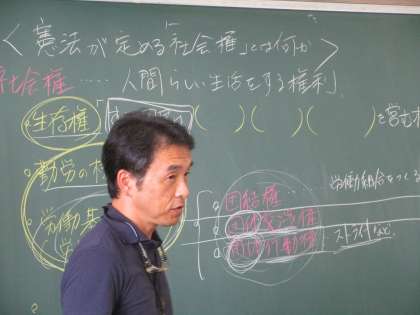 ＜憲法が定める「社会権」とは何か＞
社会権……「人間らしい生活をする権利」
○生存権「 ( ) ( ) ( ) を営む権
○勤労の権
○労働基
団結権……労働組合をつくる
団体交渉権
団体行動権 ストライキなど